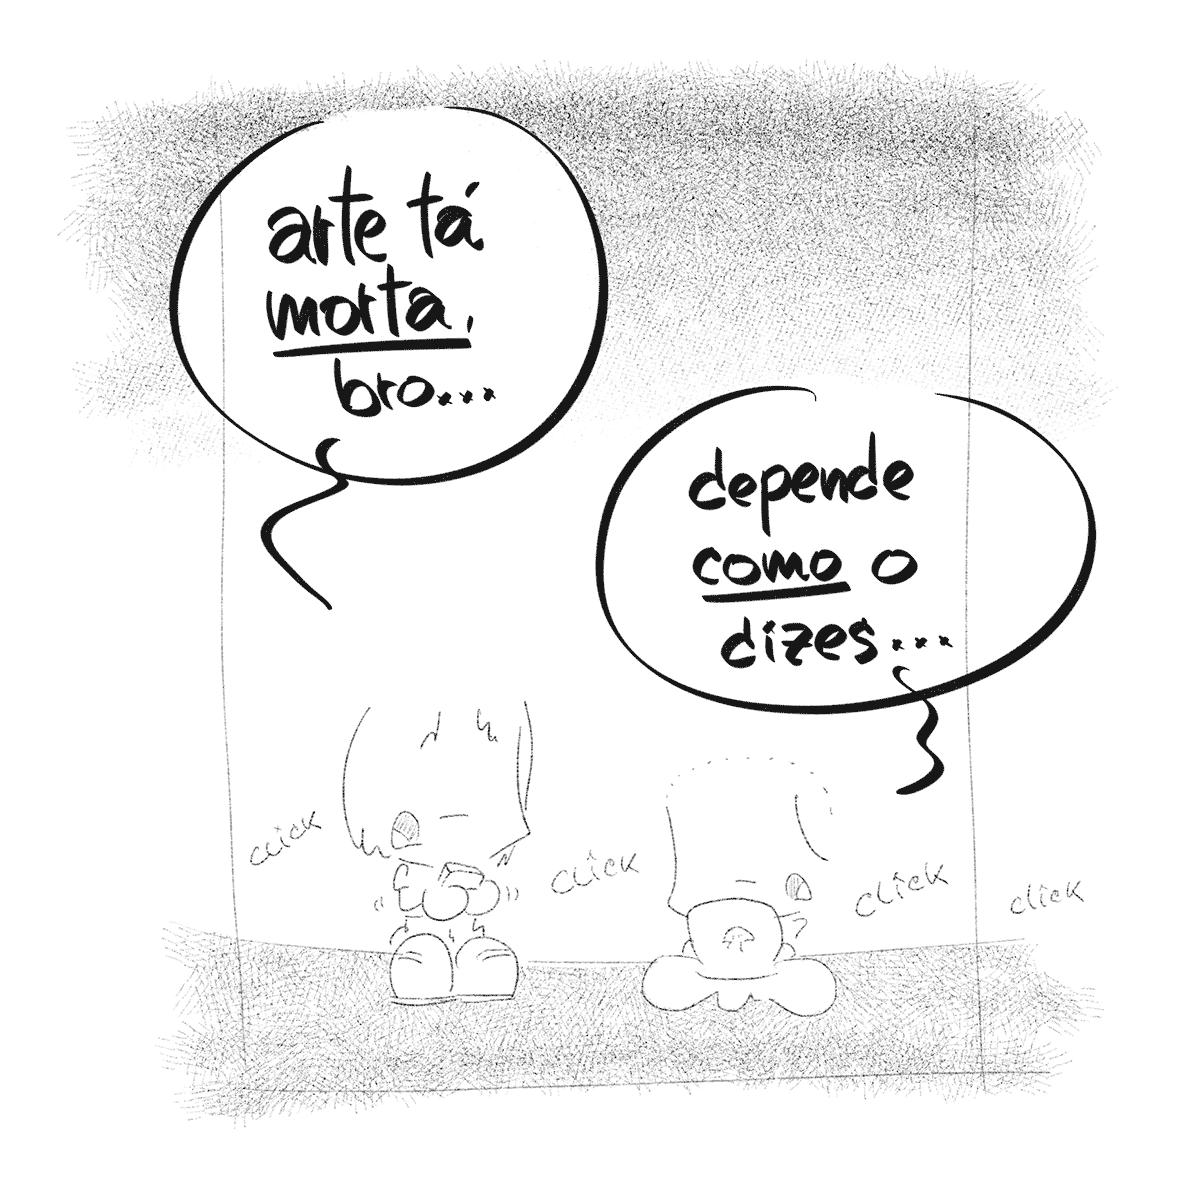 arte tá
morta,
bro...
depende
como o
dizes...
click
click
click
click